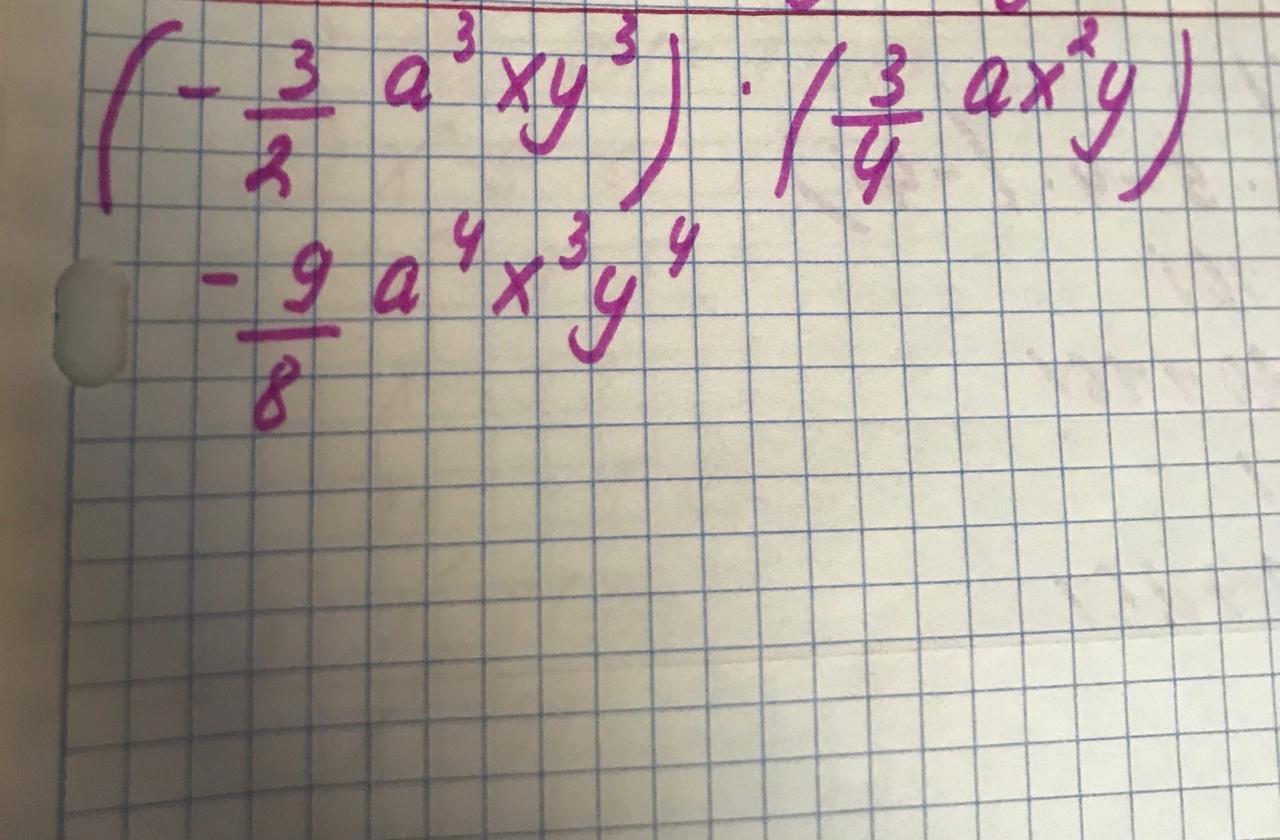 (- 3/2 a³xy³) · (3/4 ax²y)
- 9/8 a⁴x³y⁴